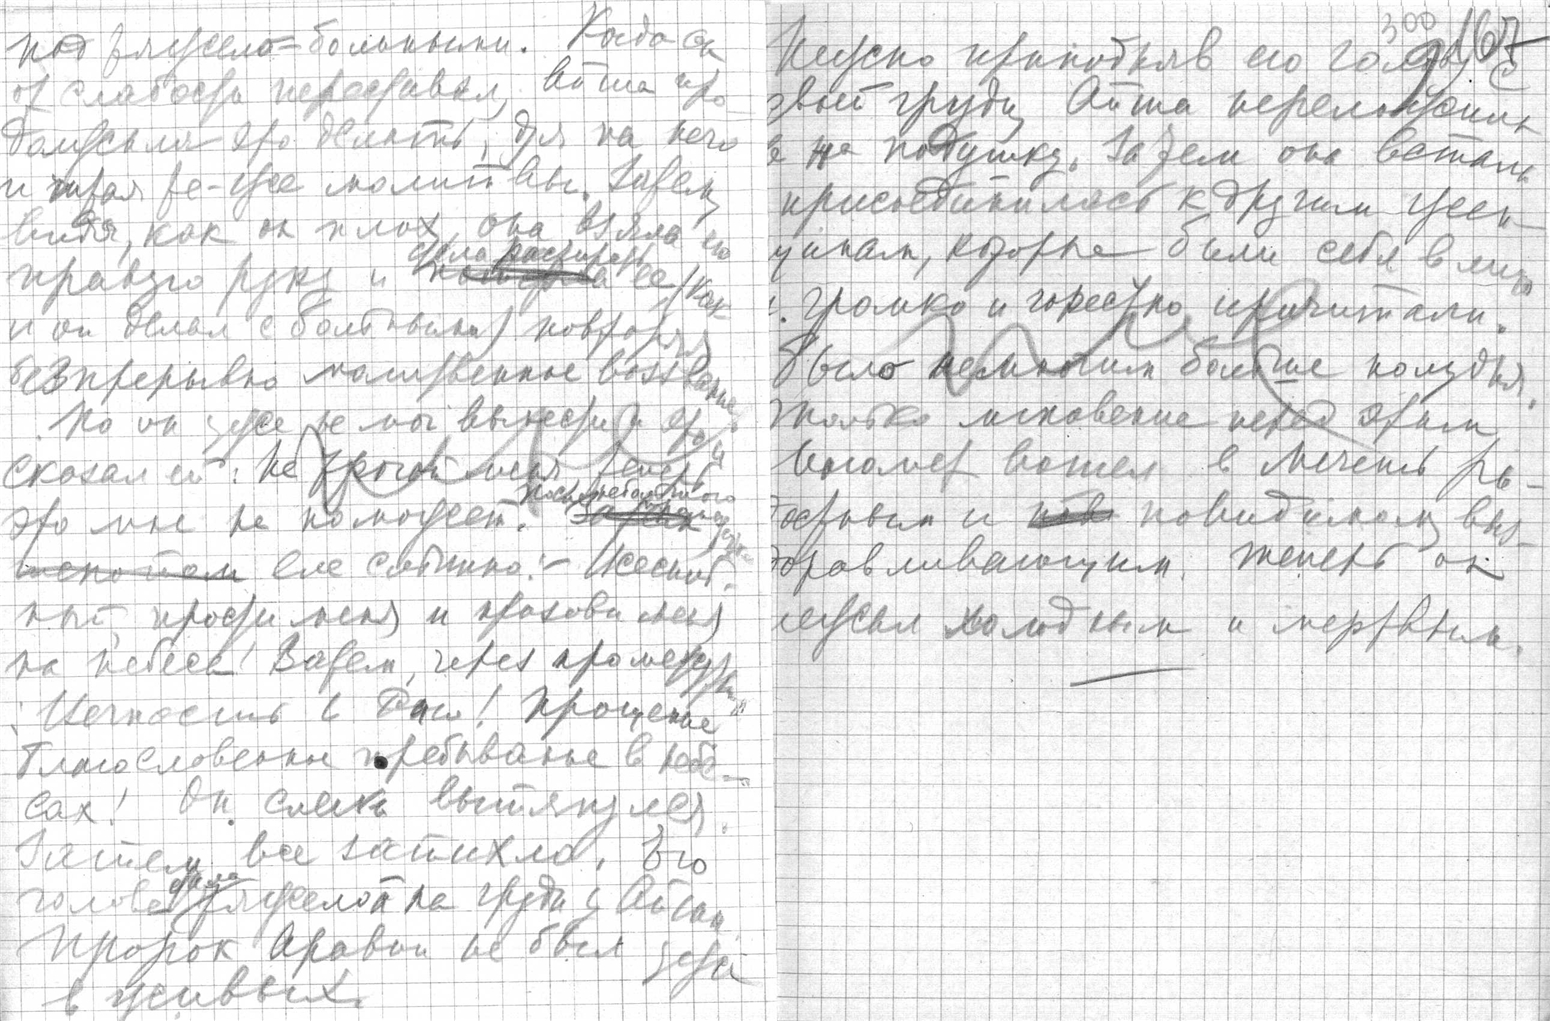 над тяжело-больными. Когда он
от слабости переставал, Айша про
должала это делать, дуя на него
и шепча те-же молитвы. Затем,
видя, как он плох, она взяла его
правую руку и стала растирать ее, (как
и он делал с больными) повторяя
безпрерывно молитвенные воззвания.
Но он уже не мог вынести и это и
сказал ей: Не трогай меня теперь
это мне не поможет.
еле слышно: -
ный, прости меня и призови меня
на небеса! Затем, через промежутки
: Вечность в Раю! Прощение
Благословенное пребывание в небе-
сах! Он слегка вытянулся.
Затем все затихло. Его
голова была тяжелой на груди у Айши.
Пророк Аравии не был уже
в живых.
300 167
Нежно приподняв его голову с
своей груди, Айша переложила
ее на подушку. Затем она встала
присоединилась к другим жен
щинам, которые били себя в лицо
и громко и горестно причитали.
Было немногим больше полудня.
Только мгновение перед этим
Магомет вошел в мечеть ра-
достным и повидимому выз-
доравливающим. Теперь он
лежал холодным и мертвым.